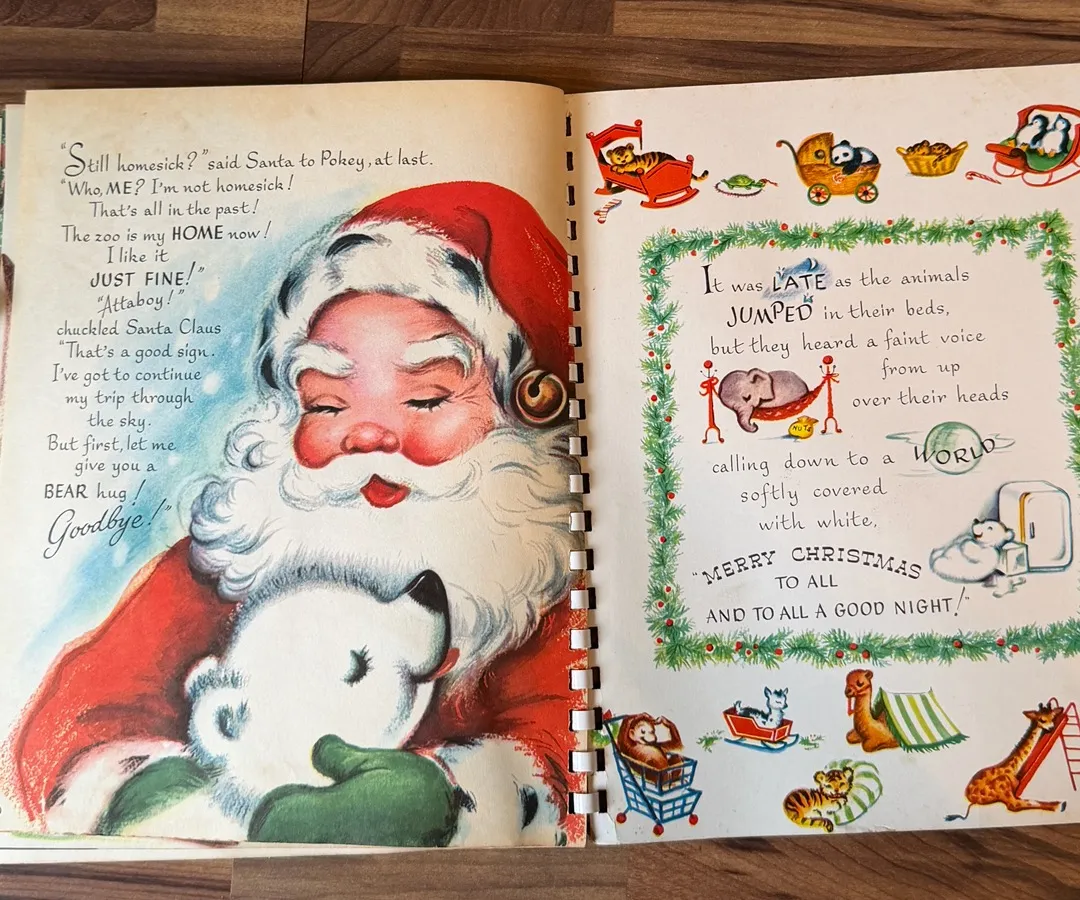 "Still homesick?" said Santa to Pokey, at last.
"Who, ME? I'm not homesick!
That's all in the past!
The zoo is my HOME now!
I like it
JUST FINE!"
"Attaboy!"
chuckled Santa Claus
"That's a good sign.
I've got to continue
my trip through
the sky.
But first, let me
give you a
BEAR hug!
Goodbye!"
It was LATE as the animals
JUMPED in their beds,
but they heard a faint voice
from up
over their heads
NUTS
calling down to a WORLD
softly covered
with white,
"MERRY CHRISTMAS
TO ALL
AND TO ALL A GOOD NIGHT!"